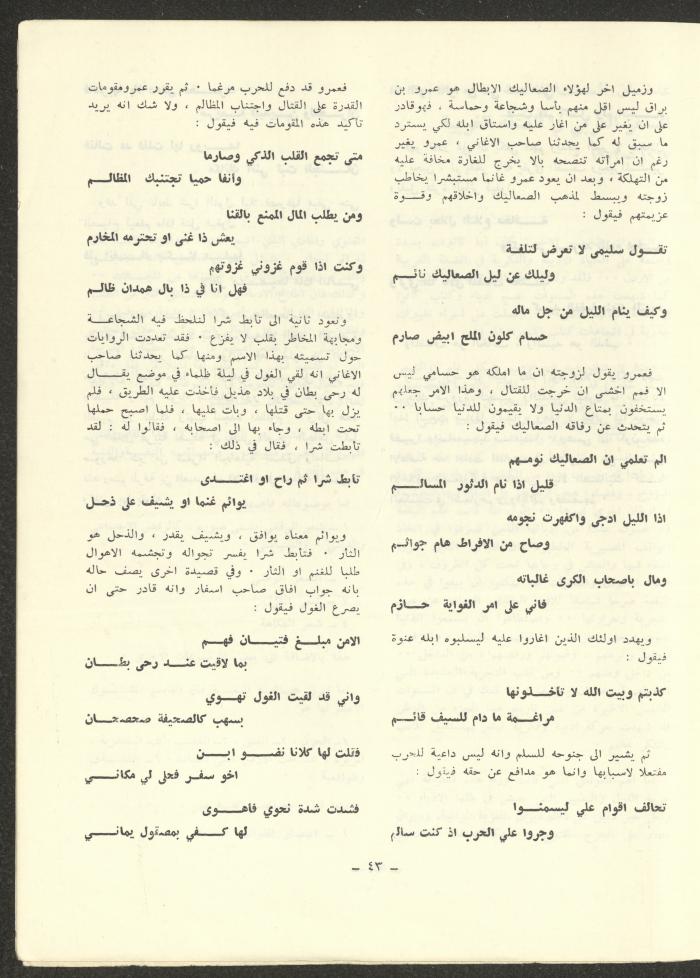 وزميل اخر لهؤلاء الصعاليك الابطال هو عمرو بن
براق ليس اقل منهم بأسا وشجاعة وحماسة ، فهوقادر
على ان يغير على من اغار عليه واستاق ابله لكي يسترد
ما سبق له كما يحدثنا صاحب الاغاني ، عمرو يغير
رغم ان امرأته تنصحه بالا يخرج للغارة مخافة عليه
من التهلكة ، وبعد ان يعود عمرو غانما مستبشرا يخاطب
زوجته ويبسط لمذهب الصعاليك واخلاقهم وقـــوة
عزيمتهم فيقول :
تقـــول سليمى لا تعرض لتلفـة
وليلك عن ليل الصعاليك نائــم
وكيف ينام الليل من جل ماله
حسام كلون الملح ابيض صارم
فعمرو يقول لزوجته ان ما املكه هو حسامي ليس
الا فمم اخشى ان خرجت للقتال ، وهذا الامر جعلهم
يستخفون بمتاع الدنيا ولا يقيمون للدنيا حسابا ٠٠
ثم يتحدث عن رفاقه الصعاليك فيقول :
الم تعلمي ان الصعاليك نومـهم
قليل اذا نام الدثور المسالــــم
اذا الليل ادجى واكفهرت نجومه
وصاح من الافراط هام جواثــم
ومال باصحاب الكرى غالباته
فاني على امر الغواية حـــازم
ويهدد اولئك الذين اغاروا عليه ليسلبوه ابله عنوة
فيقول :
كذبتم وبيت الله لا تأخـــذونها
مراغـــمة ما دام للسيف قائــم
ثم يشير الى جنوحه للسلم وانه ليس داعية للحرب
مفتعلا لاسبابها وانما هو مدافع عن حقه فيقول :
تحالف اقوام علي ليسمنـــوا
وجروا علي الحرب اذ كنت سالم
فعمرو قد دفع للحرب مرغما ٠ ثم يقرر عمرومقومات
القدرة على القتال واجتناب المظالم ، ولا شك انه يريد
تأكيد هذه المقومات فيه فيقول :
متى تجمع القلب الذكي وصارما
وأنفا حميا تجتنبك المظالــم
ومن يطلب المال الممنع بالقنا
يعش ذا غنى او تخترمه المخارم
وكنت اذا قوم غزوني غزوتهم
فهل انا في ذا بال همدان ظالـم
ونعود ثانية الى تأبط شرا لنلحظ فيه الشجاعـــة
ومجابهة المخاطر بقلب لا يفزع ٠ فقد تعددت الروايات
حول تسميته بهذا الاسم ومنها كما يحدثنا صاحب
الاغاني انه لقي الغول في ليلة ظلماء في موضع يقــــال
له رحى بطان في بلاد هذيل فأخذت عليه الطريق ، فلم
يزل بها حتى قتلها ، وبات عليها ، فلما اصبح حملها
تحت ابطه ، وجاء بها الى اصحابه ، فقالوا له : لقد
تأبطت شرا ، فقال في ذلك :
تأبط شرا ثم راح او اغتـــدى
يوائم غنما او يشيف على ذحـل
ويوائم معناه يوافق ، ويشيف يقدر ، والذحل هو
الثأر ٠ فتأبط شرا يفسر تجواله وتجشمه الاهوال
طلبا للغنم او الثأر ٠ وفي قصيدة اخرى يصف حاله
بانه جواب افاق صاحب اسفار وانه قادر حتى ان
يصرع الغول فيقول :
الامن مبلـــغ فتيـــان فهـــم
بما لاقيت عنـــد رحى بطـــان
واني قد لقيت الغول تهـــوي
بسهب كالصحيفة صحصحـــان
فقلت لها كلانا نضـــو ايــن
اخو سفـر فخلى لي مكانـــي
فشدت شدة نحوي فأهـــوى
لها كـــفي بمصقول يمانـــي
ــ ٤٣ ــ